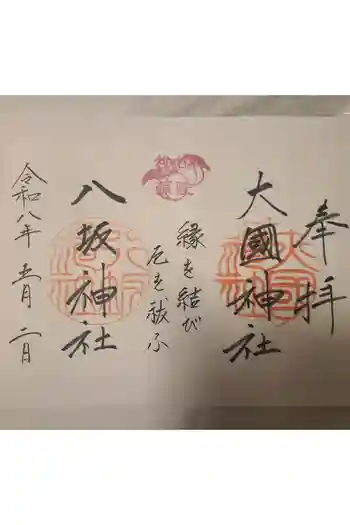 奉拝
大國神社
縁を結び
厄を祓ふ
八坂神社
令和八年五月二日